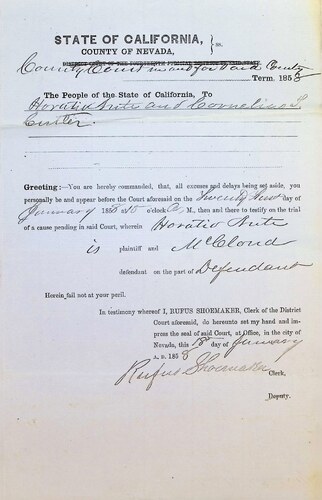 STATE OF CALIFORNIA, } ss.
COUNTY OF NEVADA,
DISTRICT COURT OF THE FOURTEENTH JUDICIAL DISTRICT
County Court in and for said County
Term, 1858
The People of the State of California, To
Horatio and Cornelius T.
Custer.
Greeting:—You are hereby commanded, that, all excuses and delays being set aside, you
personally be and appear before the Court aforesaid on the Twenty day of
January 1858 at 10 o'clock A. M., then and there to testify on the trial
of a cause pending in said Court, wherein Horatio
is plaintiff and McCloud
defendant on the part of Defendant
Herein fail not at your peril.
In testimony whereof I, RUFUS SHOEMAKER, Clerk of the District
Court aforesaid, do hereunto set my hand and im-
press the seal of said Court, at Office, in the city of
Nevada, this day of January
A. D. 1858
Rufus Shoemaker Clerk,
Deputy.